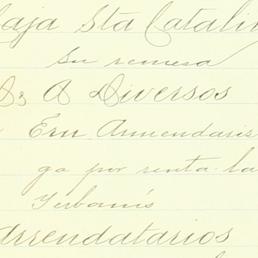 aja Sta Catalin
Su remesa
Ds A Diversos
Ern Armendaris
ga por renta la
Yerbanís
Arrendatarios